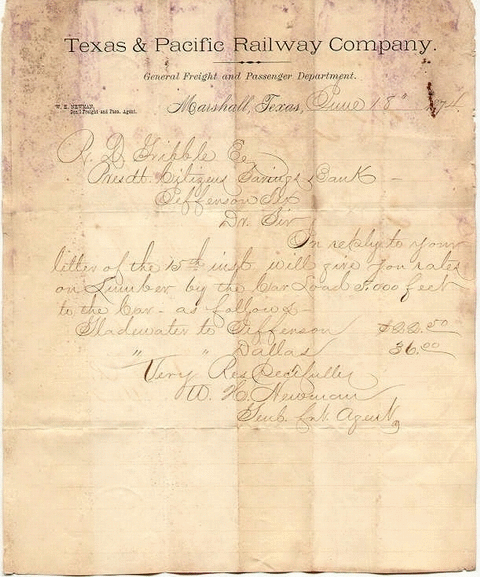 Texas & Pacific Railway Company.
General Freight and Passenger Department.
W. H. NEWMAN,
Gen'l Freight and Pass. Agent.
Marshall, Texas, June 18" 74
R. D. Gribble Es
Presdt. Citizens Savings Bank
Jefferson Tex
Dr. Sir
In reply to your
letter of the 15th inst will give you rates
on Lumber by the Car Load 8,000 feet
to the Car - as follows
Gladewater to Jefferson $22.50
" " Dallas 36.00
Very Respectfully
W. H. Newman
Genl. Frt. Agent